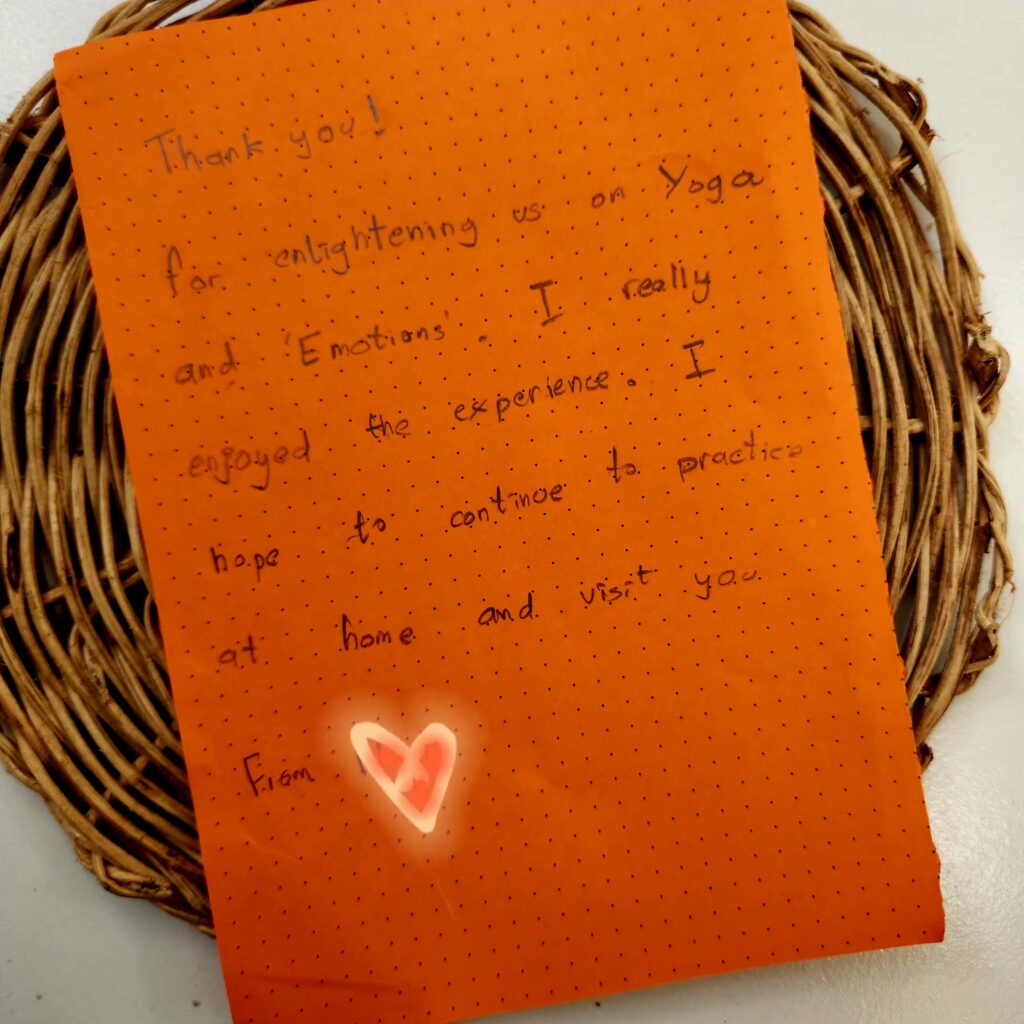 Thank you!
for enlightening us on Yoga
and 'Emotions'. I really
enjoyed the experience. I
hope to continue to practice
at home and visit you
From